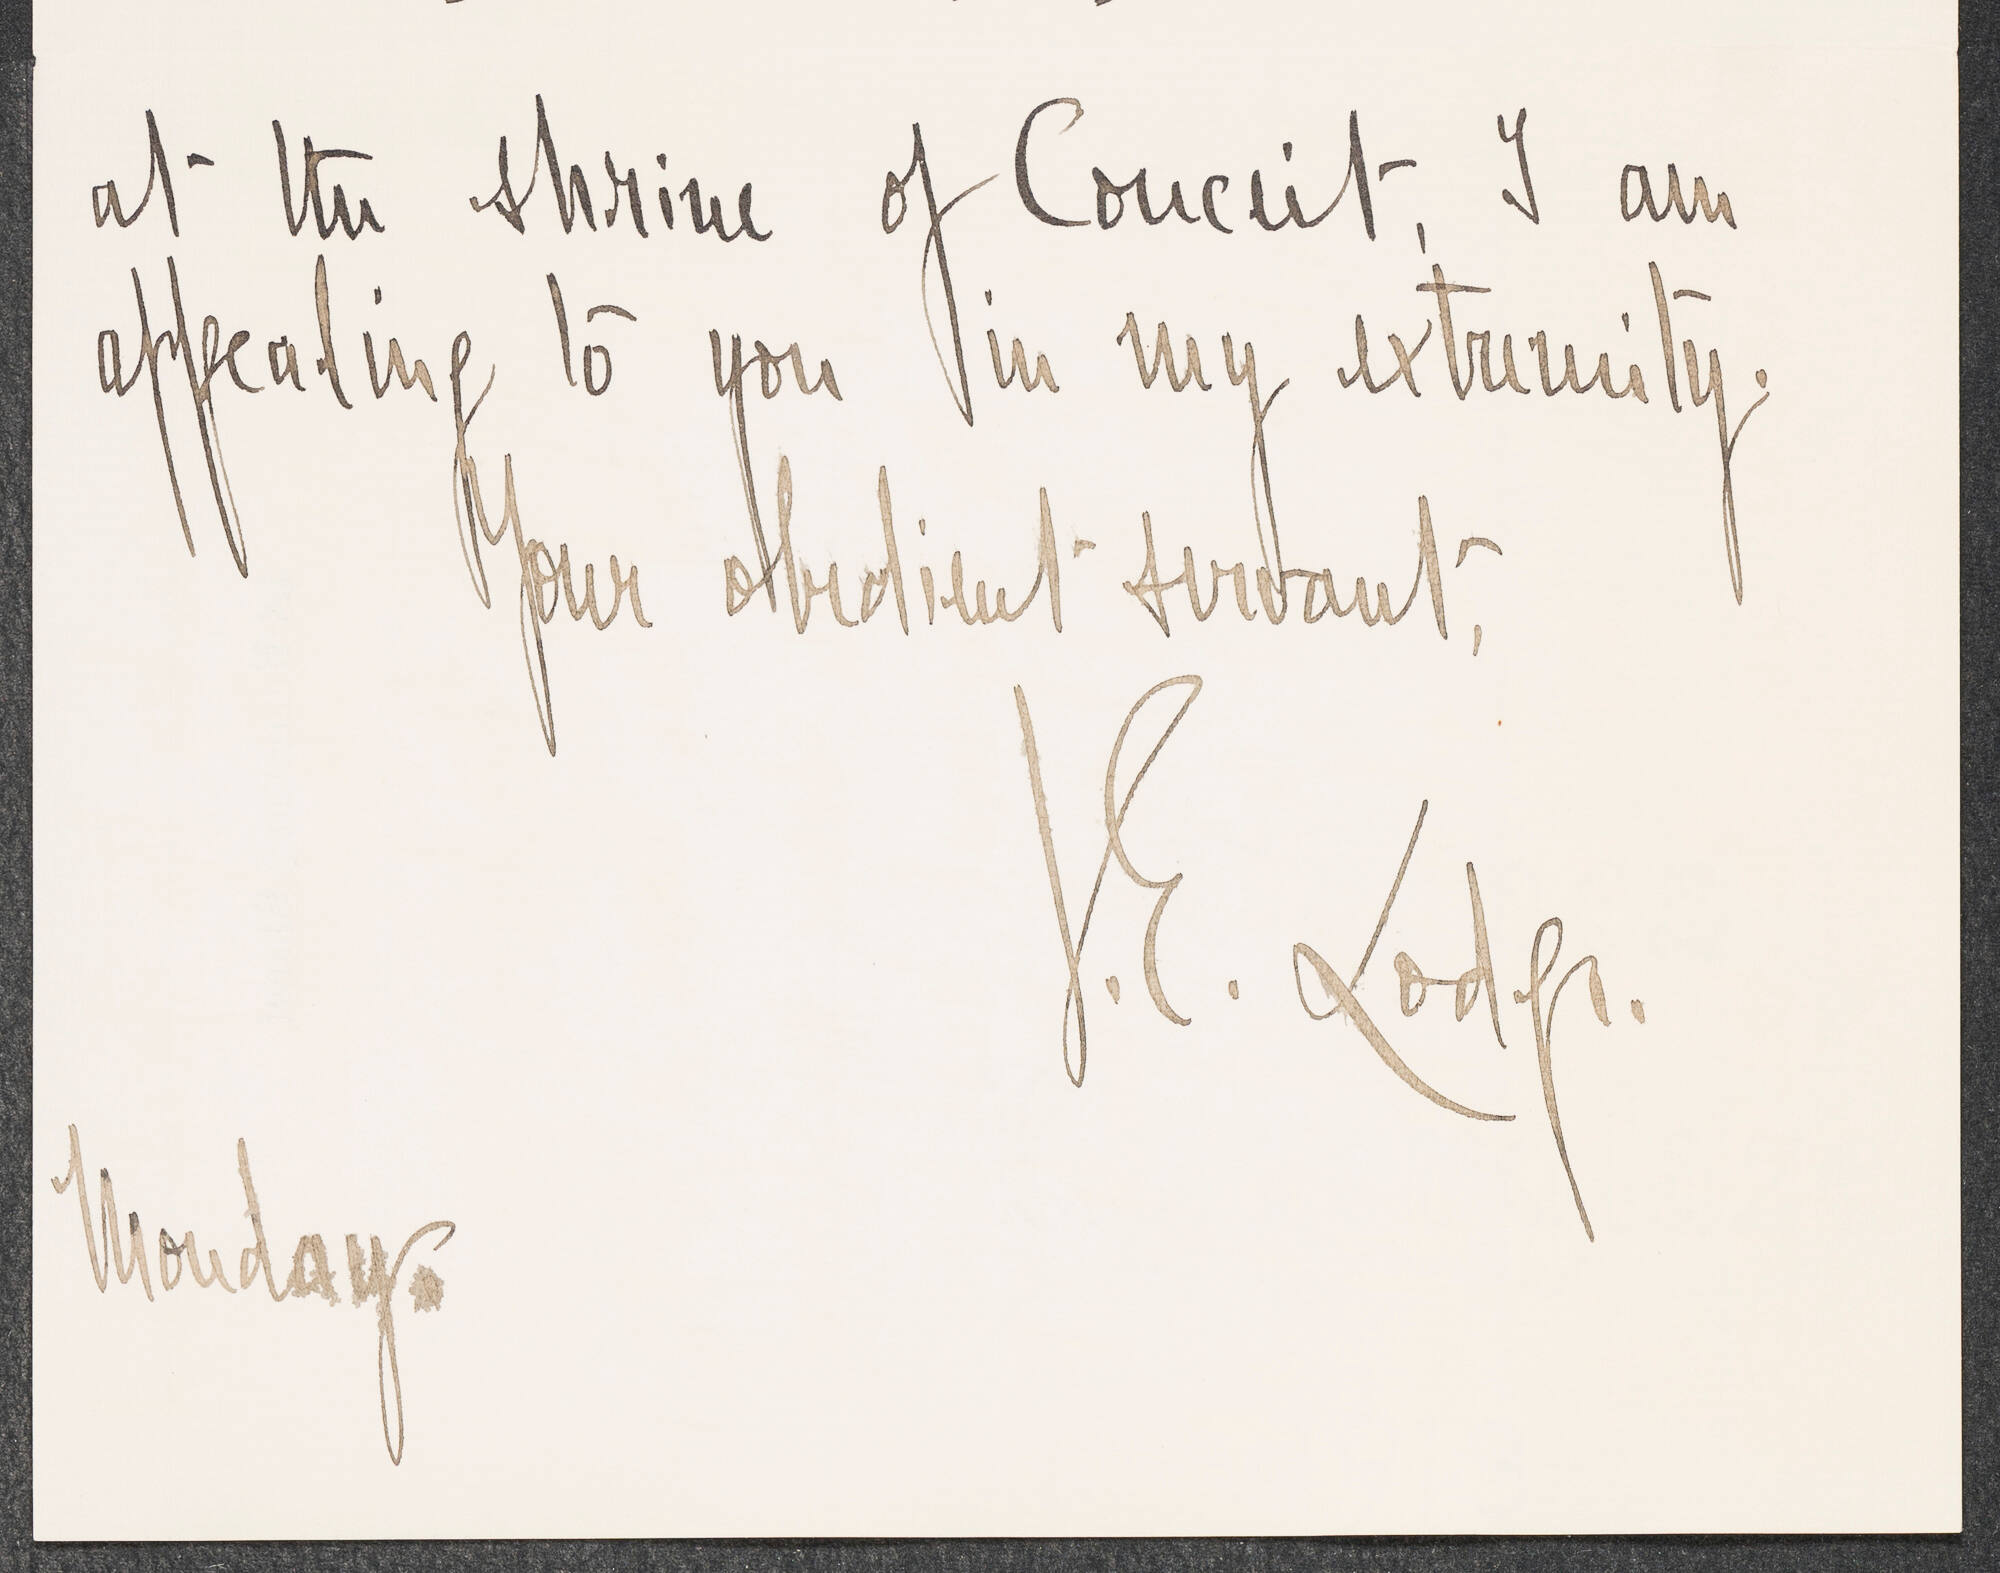 at the shrine of Conceit, I am
appealing to you in my extremity.
Your obedient servant,
J. E. Lodge.
Monday.